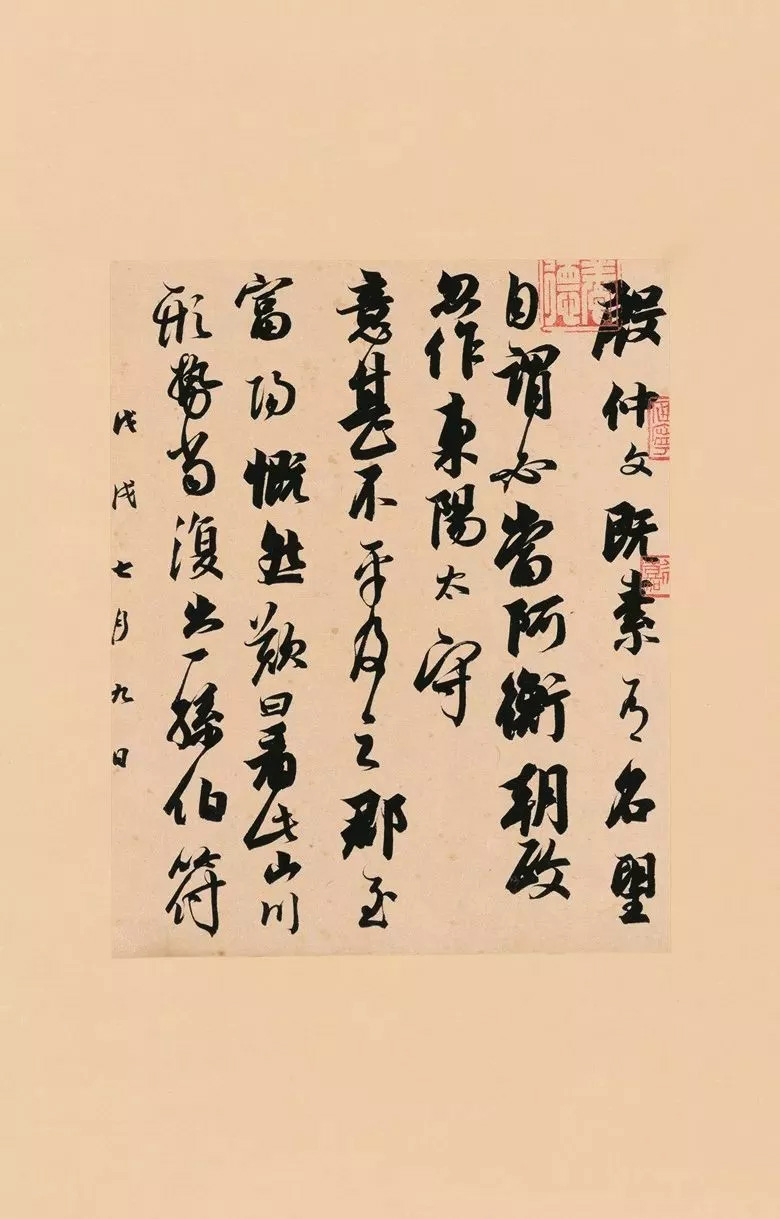 殷仲文既素有名望
自謂必當阿衡朝政
忽作東陽太守
意甚不平及之郡至
富陽慨然歎曰看此山川
形勢当復出一孫伯符
戊戌七月九日